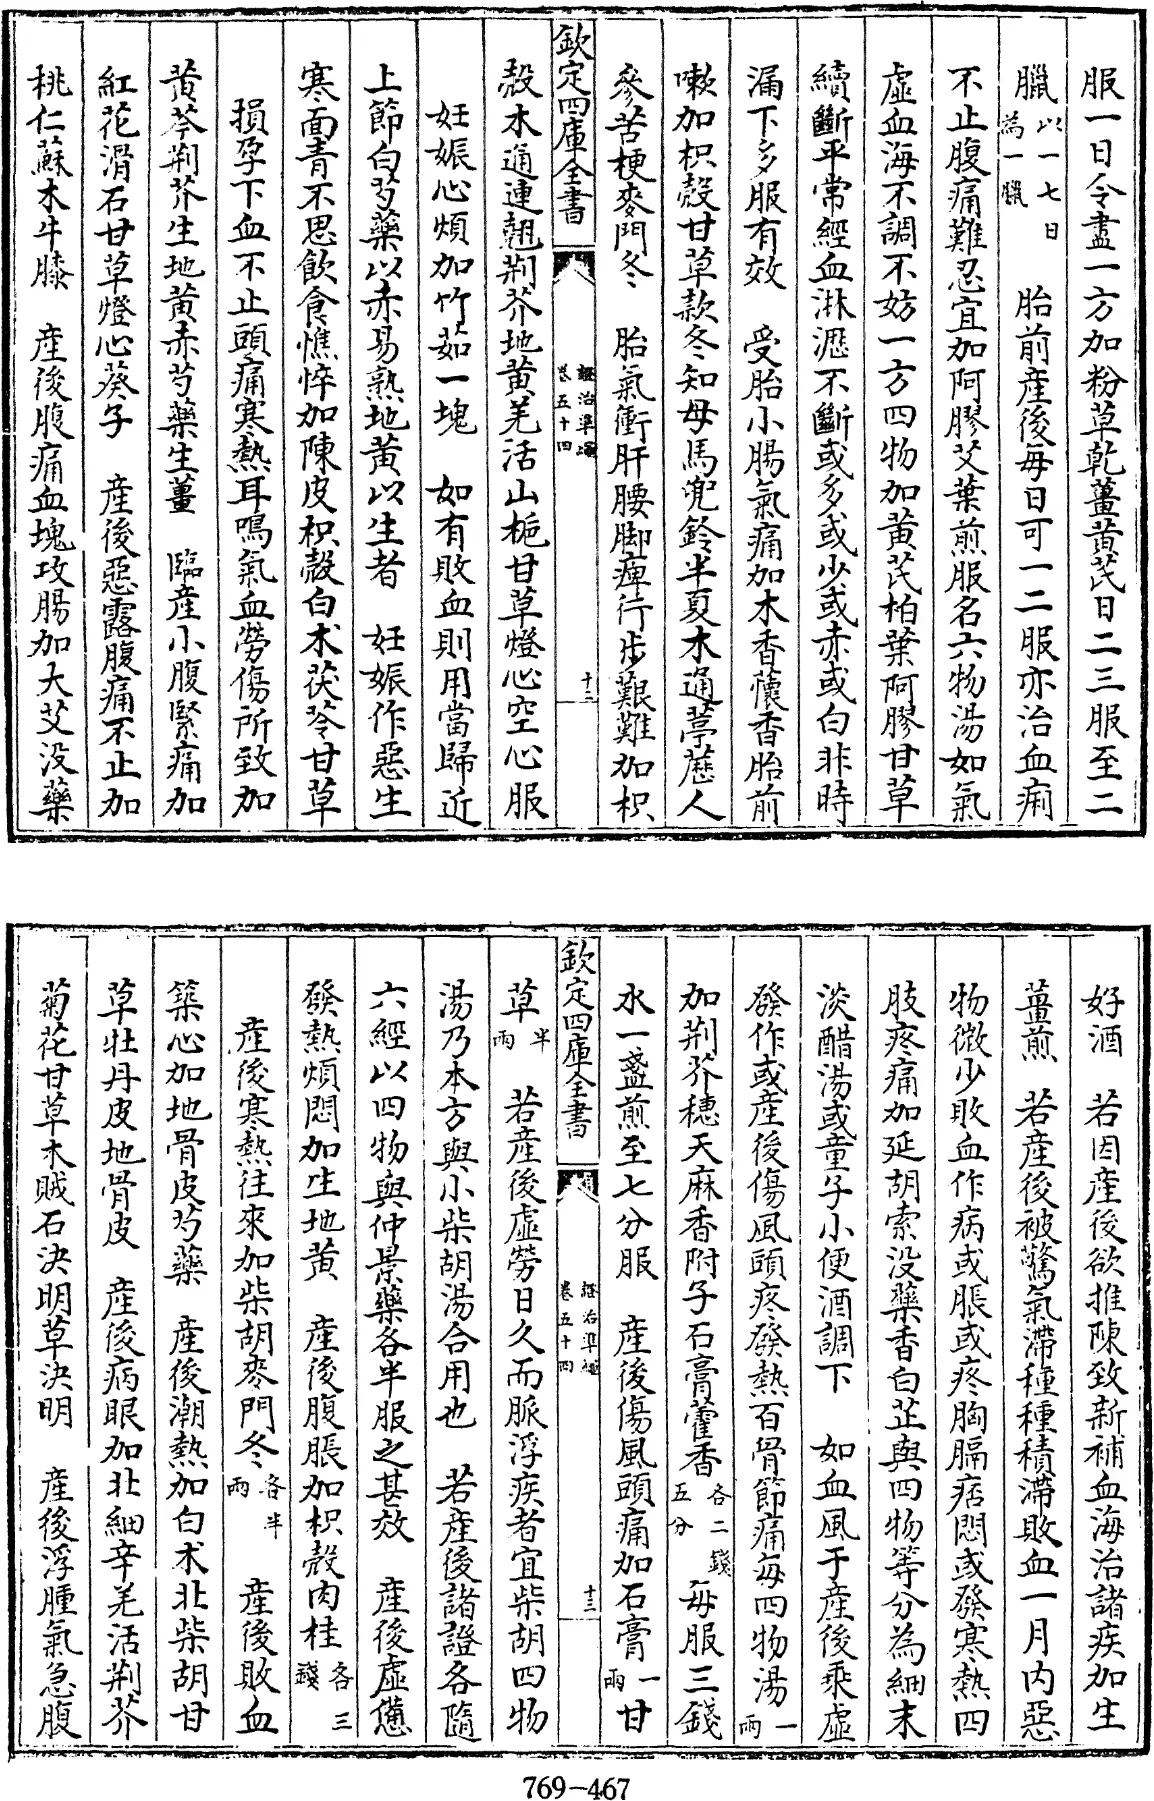 服一日令盡一方加粉草乾薑黃芪日二三服至二
臘以一七日為一臘　胎前産後每日可一二服亦治血痢
不止腹痛難忍宜加阿膠艾葉煎服名六物湯如氣
虛血海不調不妨一方四物加黃芪柏葉阿膠甘草
續斷平常經血淋瀝不斷或多或少或赤或白非時
漏下多服有效　受胎小腸氣痛加木香蘹香胎前
嗽加枳殼甘草款冬知母馬兜鈴半夏木通葶藶人
參苦梗麥門冬　胎氣衝肝腰脚痺行步艱難加枳
欽定四庫全書
證治準繩
卷五十四
十三
殼木通連翹荆芥地黃羌活山梔甘草燈心空心服
妊娠心煩加竹茹一塊　如有敗血則用當歸近
上節白芍藥以赤易熟地黃以生者　妊娠作惡生
寒面青不思飲食憔悴加陳皮枳殼白朮茯苓甘草
損孕下血不止頭痛寒熱耳鳴氣血勞傷所致加
黃芩荆芥生地黃赤芍藥生薑　臨産小腹緊痛加
紅花滑石甘草燈心葵子　産後惡露腹痛不止加
桃仁蘇木牛膝　産後腹痛血塊攻腸加大艾没藥
好酒　若因産後欲推陳致新補血海治諸疾加生
薑煎　若産後被驚氣滯種種積滯敗血一月内惡
物微少敗血作病或脹或疼胸膈痞悶或發寒熱四
肢疼痛加延胡索没藥香白芷與四物等分為細末
淡醋湯或童子小便酒調下　如血風于産後乘虛
發作或産後傷風頭疼發熱百骨節痛每四物湯一兩
加荆芥穗天麻香附子石膏藿香各二錢五分每服三錢
水一盞煎至七分服　産後傷風頭痛加石膏一兩甘
欽定四庫全書
證治準繩
卷五十四
十三
草半兩　若産後虛勞日久而脈浮疾者宜柴胡四物
湯乃本方與小柴胡湯合用也　若産後諸證各隨
六經以四物與仲景藥各半服之甚效　産後虛憊
發熱煩悶加生地黃　産後腹脹加枳殼肉桂各三錢
産後寒熱往來加柴胡麥門冬各半兩　産後敗血
築心加地骨皮芍藥　産後潮熱加白朮北柴胡甘
草牡丹皮地骨皮　産後病眼加北細辛羌活荆芥
菊花甘草木賊石決明草決明　産後浮腫氣急腹
769-467